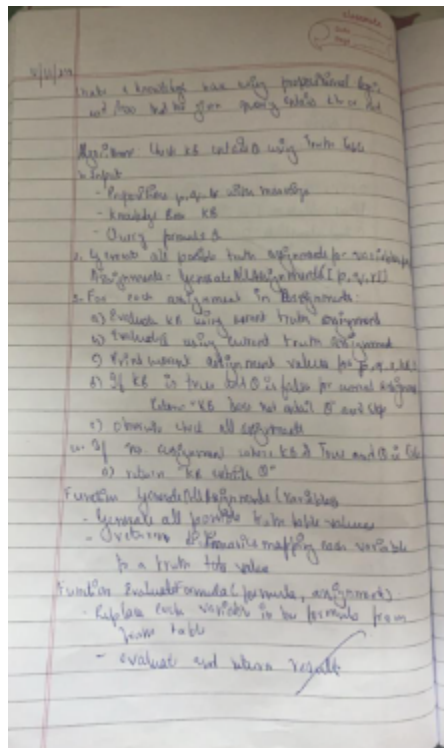 classmate
Date
Page
Create a knowledge base using propositional logic
and the given query entails KB or not
Algorithm: Check KB entails Q using Truth Table
1. Input
- Propositions p, q, r with meanings
- Knowledge Base KB
- Query formula Q
2. Generate all possible truth assignments for variables
Assignments = GenerateAllAssignments([p, q, r])
3. For each assignment in Assignments:
a) Evaluate KB using current truth assignment
b) Evaluate Q using current truth assignment
c) Print current assignment values for p, q, r
d) If KB is true but Q is false for current assignment
Return "KB does not entail Q" and stop
e) Otherwise check all assignments
4. If no assignment where KB is True and Q is False
a) return "KB entails Q"
Function GenerateAllAssignments (variables)
- Generate all possible truth table values
- return dictionaries mapping each variable
to a truth table value
Function EvaluateFormula (formula, assignment):
- Replace each variable in the formula from
truth table
- evaluate and return result